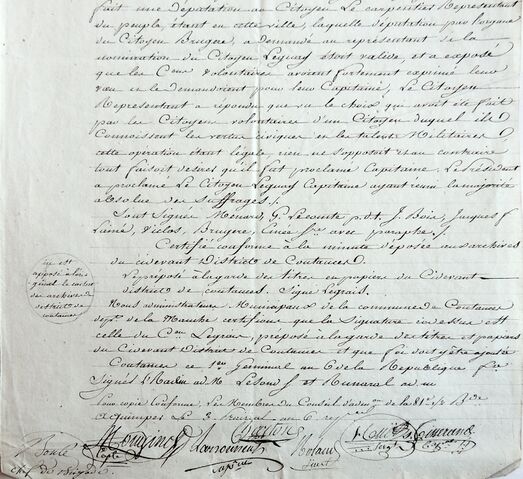 fait une députation au Citoyen Le carpentier Représentant
du peuple, étant en cette ville, laquelle députation par l'organe
du Citoyen Bruyere, a demandé au représentant si la
nomination du Citoyen Leguay étoit valide, et a exposé
que les Cens Volontaires avoient fortement exprimé leur
vœu en le demandant pour leur Capitaine, Le Citoyen
Représentant a répondu que vu le choix qui avoit été fait
par les Citoyens volontaires d'un Citoyen duquel ils
Connoissent les vertus civiques et les talents Militaires
cette opération étant légale rien ne s'opposoit et au contraire
tout faisoit désirer qu'il fût proclamé Capitaine, Le Président
a proclamé Le Citoyen Leguay Capitaine ayant réuni la majorité
absolue des suffrages.
Sont Signés Menard, G. Lecomte pdt, J. Bois, Jacques
Lainé, Viclos, Bruyere, avec paraphe.
Certifié conforme à la minute déposée aux archives
du civerant District de Coutances
Le préposé à la garde des titres et papiers du Civerant
district de coutances. Signé Legrais.
Nous administrateurs Municipaux de la commune de Coutances
dept. de la Manche certifions que la signature ci dessus est
celle du Cen Legrais, préposé à la garde des titres et papiers
du Civerant District de Coutances et que foi doit y être ajoutée
Coutances ce 1er Germinal an 6 de la République
Signés
Pour copie Conforme, Les Membres du Conseil d'adon de la 81e 1/2 Bde
a quimper Le 3 an 6
est
apposé à l'ori
ginal le cachet
des archives du
district de
coutances
chef de Brigade